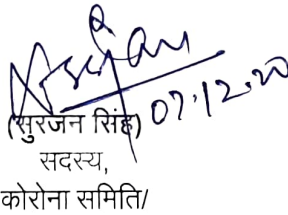 07.12.20
(सुरजन सिंह)
सदस्य,
कोरोना समिति/